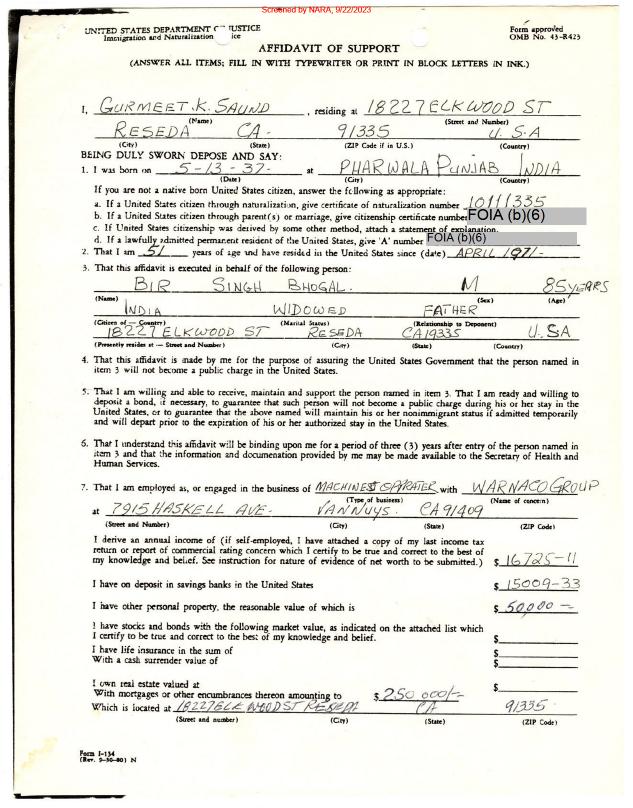 Screened by NARA, 9/22/2023
UNITED STATES DEPARTMENT OF JUSTICE
Immigration and Naturalization ice
Form approved
OMB No. 43-R423
AFFIDAVIT OF SUPPORT
(ANSWER ALL ITEMS; FILL IN WITH TYPEWRITER OR PRINT IN BLOCK LETTERS IN INK.)
I, GURMEET.K. SAUND, residing at 18227 ELKWOOD ST
(Name) (Street and Number)
RESEDA CA- 91335 U.S.A
(City) (State) (ZIP Code if in U.S.) (Country)
BEING DULY SWORN DEPOSE AND SAY:
1. I was born on 5-13-37- at PHARWALA PUNJAB INDIA
(Date) (City) (Country)
If you are not a native born United States citizen, answer the following as appropriate:
a. If a United States citizen through naturalization, give certificate of naturalization number 10111335
b. If a United States citizen through parent(s) or marriage, give citizenship certificate number FOIA (b)(6)
c. If United States citizenship was derived by some other method, attach a statement of explanation.
d. If a lawfully admitted permanent resident of the United States, give 'A' number FOIA (b)(6)
2. That I am 51 years of age and have resided in the United States since (date) APRIL 1971-
3. That this affidavit is executed in behalf of the following person:
BIR SINGH BHOGAL. M 85 YEARS
(Name) (Sex) (Age)
INDIA WIDOWED FATHER
(Citizen of — Country) (Marital Status) (Relationship to Deponent)
18227 ELKWOOD ST RESEDA CA19335 U.SA
(Presently resides at — Street and Number) (City) (State) (Country)
4. That this affidavit is made by me for the purpose of assuring the United States Government that the person named in
item 3 will not become a public charge in the United States.
5. That I am willing and able to receive, maintain and support the person named in item 3. That I am ready and willing to
deposit a bond, if necessary, to guarantee that such person will not become a public charge during his or her stay in the
United States, or to guarantee that the above named will maintain his or her nonimmigrant status if admitted temporarily
and will depart prior to the expiration of his or her authorized stay in the United States.
6. That I understand this affidavit will be binding upon me for a period of three (3) years after entry of the person named in
item 3 and that the information and documenation provided by me may be made available to the Secretary of Health and
Human Services.
7. That I am employed as, or engaged in the business of MACHINEST OPARATER with WARNACO GROUP
(Type of business) (Name of concern)
at 7915 HASKELL AVE- VANNUYS. CA91409
(Street and Number) (City) (State) (ZIP Code)
I derive an annual income of (if self-employed, I have attached a copy of my last income tax
return or report of commercial rating concern which I certify to be true and correct to the best of
my knowledge and belief. See instruction for nature of evidence of net worth to be submitted.) $ 16725-11
I have on deposit in savings banks in the United States $ 15009-33
I have other personal property, the reasonable value of which is $ 50,000 —
I have stocks and bonds with the following market value, as indicated on the attached list which
I certify to be true and correct to the best of my knowledge and belief. $
I have life insurance in the sum of $
With a cash surrender value of $
I own real estate valued at $
With mortgages or other encumbrances thereon amounting to $ 250 000/-
Which is located at 18227 ELK WOOD ST RESEDA CA 91335
(Street and number) (City) (State) (ZIP Code)
Form I-134
(Rev. 9-30-80) N